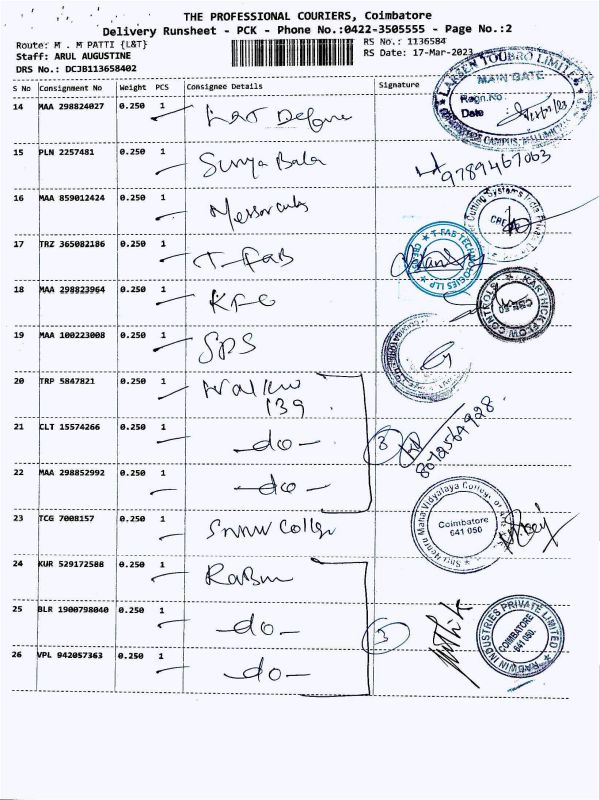 THE PROFESSIONAL COURIERS, Coimbatore
Delivery Runsheet - PCK - Phone No.:0422-3505555 - Page No.:2
Route: M . M PATTI {L&T}
RS No.: 1136584
Staff: ARUL AUGUSTINE
RS Date: 17-Mar-2023
DRS No.: DCJB113658402
S No Consignment No Weight PCS Consignee Details Signature
LARSEN TOUBRO LIMITED
MAIN GATE
Regn.No
Date
14 MAA 298824027 0.250 1 L&T Defence
15 PLN 2257481 0.250 1 Surya Bala 9789467063
16 MAA 859012424 0.250 1
17 TRZ 365082186 0.250 1 T-FAB
T-FAB TECHNOLOGIES LLP
18 MAA 298823964 0.250 1 KFC
KARTHICK FLOW CONTROLS
19 MAA 100223008 0.250 1 SPS
20 TRP 5847821 0.250 1
139
21 CLT 15574266 0.250 1 -do- 3
22 MAA 298852992 0.250 1 -do-
23 TCG 7008157 0.250 1 SNMV College
Coimbatore
641 050
24 KUR 529172588 0.250 1
25 BLR 1900798040 0.250 1 -do- 3
RABWIN INDUSTRIES PRIVATE LIMITED
COIMBATORE
641 050.
26 VPL 942057363 0.250 1 -do-